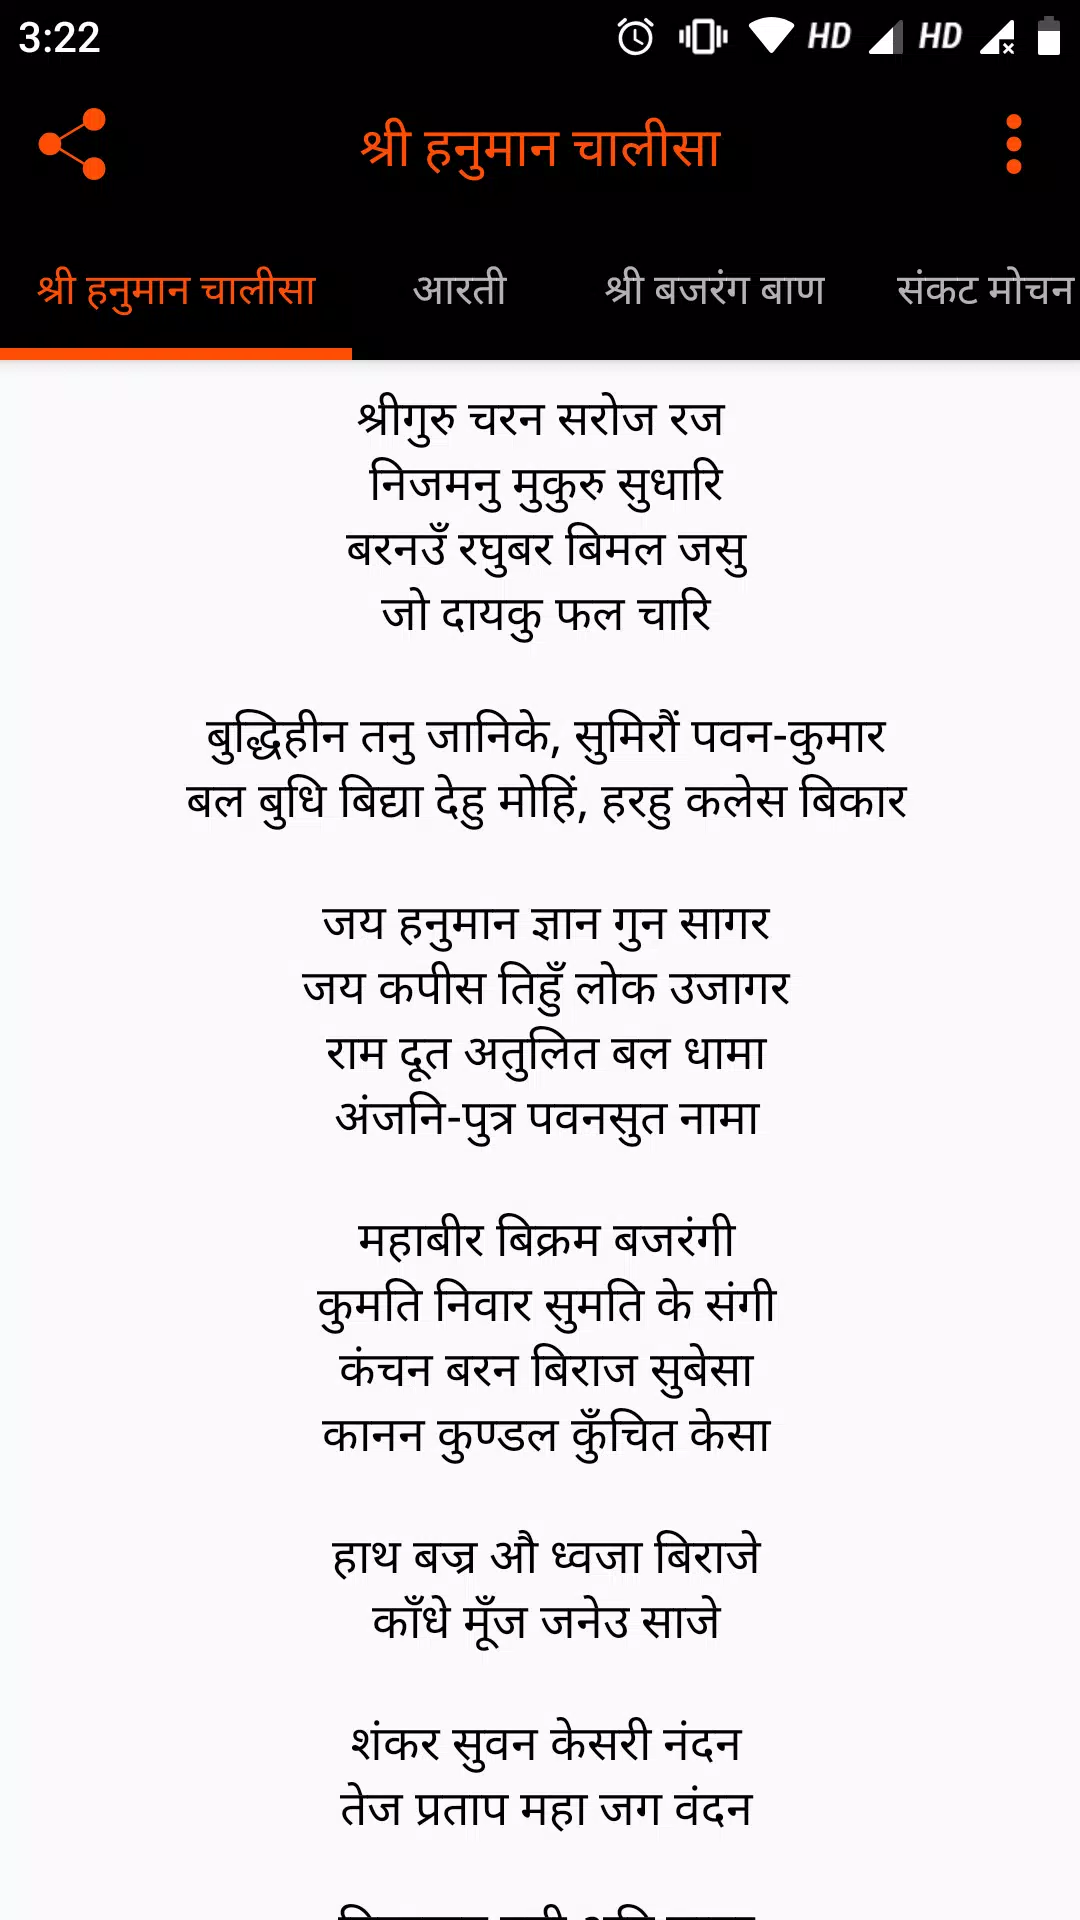 3:22
HD HD
श्री हनुमान चालीसा
श्री हनुमान चालीसा आरती श्री बजरंग बाण संकट मोचन
श्रीगुरु चरन सरोज रज
निजमनु मुकुरु सुधारि
बरनउँ रघुबर बिमल जसु
जो दायकु फल चारि
बुद्धिहीन तनु जानिके, सुमिरौं पवन-कुमार
बल बुधि बिद्या देहु मोहिं, हरहु कलेस बिकार
जय हनुमान ज्ञान गुन सागर
जय कपीस तिहुँ लोक उजागर
राम दूत अतुलित बल धामा
अंजनि-पुत्र पवनसुत नामा
महाबीर बिक्रम बजरंगी
कुमति निवार सुमति के संगी
कंचन बरन बिराज सुबेसा
कानन कुण्डल कुँचित केसा
हाथ बज्र औ ध्वजा बिराजे
काँधे मूँज जनेउ साजे
शंकर सुवन केसरी नंदन
तेज प्रताप महा जग वंदन